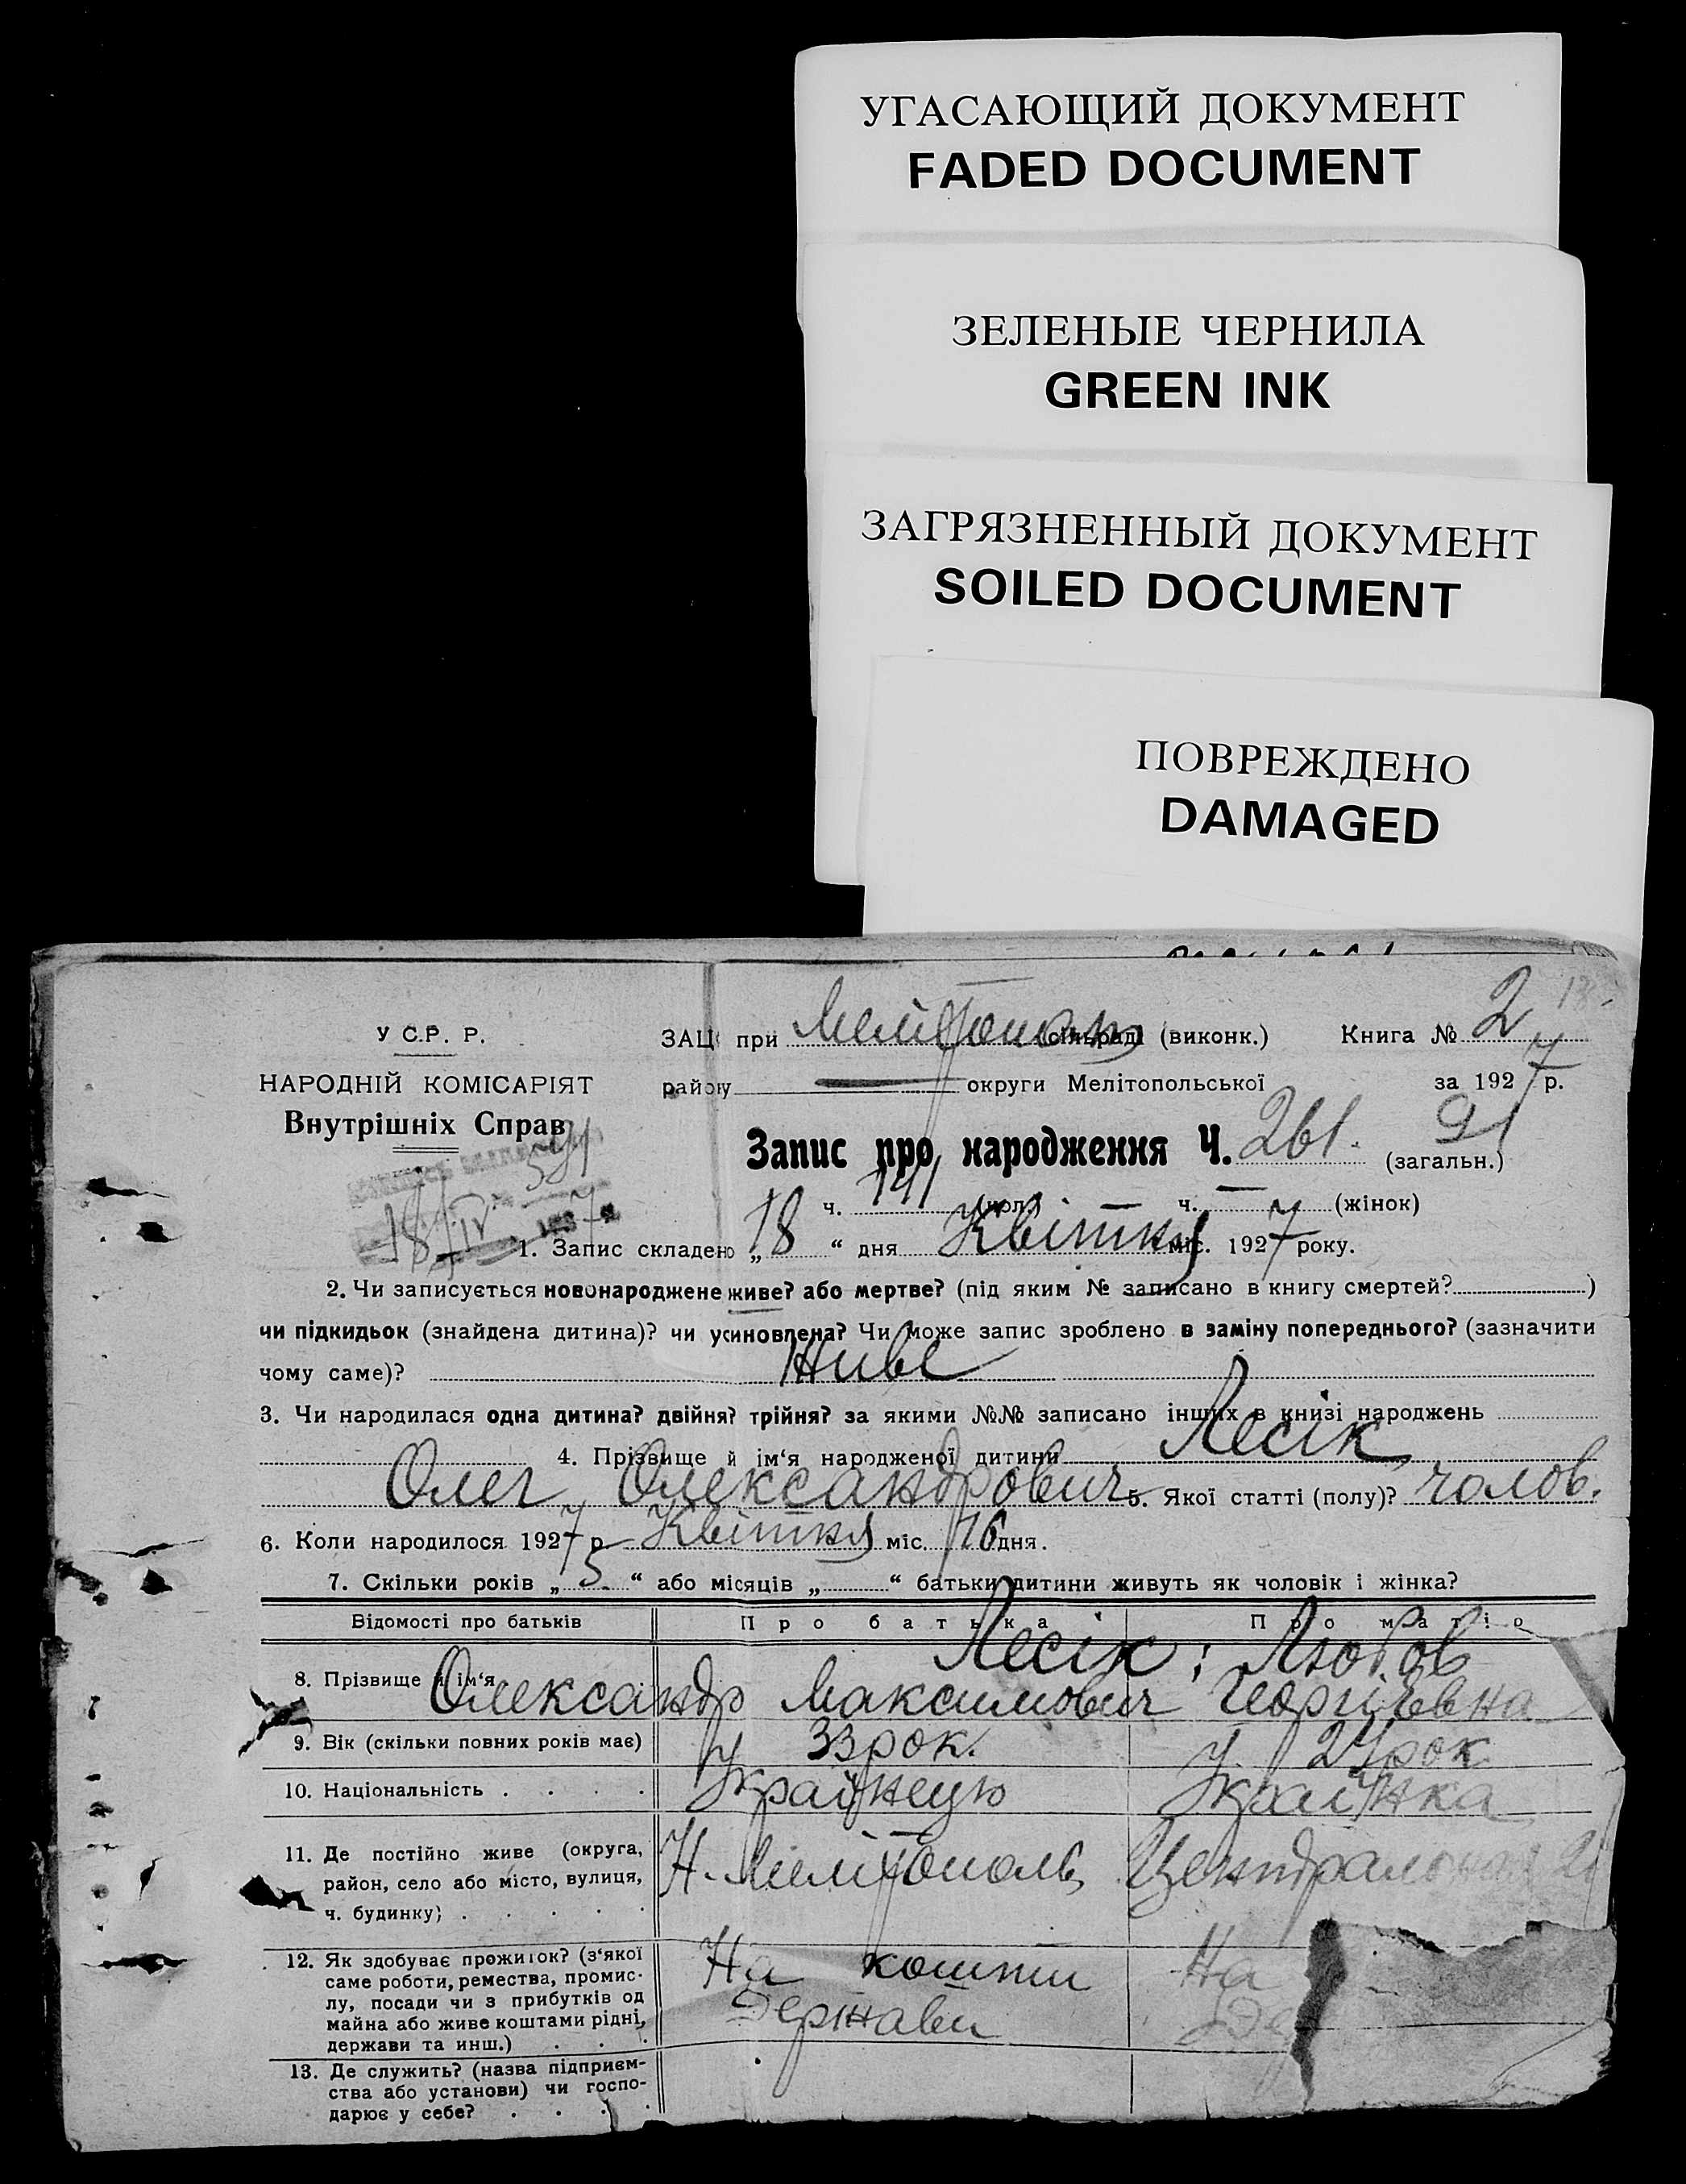 УГАСАЮЩИЙ ДОКУМЕНТ
FADED DOCUMENT
ЗЕЛЕНЫЕ ЧЕРНИЛА
GREEN INK
ЗАГРЯЗНЕННЫЙ ДОКУМЕНТ
SOILED DOCUMENT
ПОВРЕЖДЕНО
DAMAGED
У С.Р. Р.
НАРОДНІЙ КОМІСАРІЯТ
Внутрішніх Справ
ЗАЦС при сільраді (виконк.) Книга № 2
району округи Мелітопольської за 1927 р.
Запис про народження Ч. 261. (загальн.)
ч. 141 (чол.) ч. — (жінок)
1. Запис складено „18“ дня Квітня міс. 1927 року.
2. Чи записується новонароджене живе? або мертве? (під яким № записано в книгу смертей?)
чи підкидьок (знайдена дитина)? чи усиновлена? Чи може запис зроблено в заміну попереднього? (зазначити
чому саме)? Живе
3. Чи народилася одна дитина? двійня? трійня? за якими №№ записано інших в книзі народжень
4. Прізвище й ім‘я народженої дитини Лесік
Олег Олександрович 5. Якої статті (полу)? чолов.
6. Коли народилося 1927 р. Квітня міс. 16 дня.
7. Скільки років „5“ або місяців „ “ батьки дитини живуть як чоловік і жінка?
Відомості про батьків Про батька Про матір
8. Прізвище й ім‘я Лесік; Любов
Олександр Максимович Георгіевна
9. Вік (скільки повних років має) 33 рок. 24 рок
10. Національність . . . . Украйнець Украінка
11. Де постійно живе (округа,
район, село або місто, вулиця,
ч. будинку) . . . . . Мелітополь Центральная
12. Як здобуває прожиток? (з‘якої
саме роботи, ремества, промис-
лу, посади чи з прибутків од
майна або живе коштами рідні,
держави та инш.) . . . На кошти Держави На
13. Де служить? (назва підприєм-
ства або установи) чи госпо-
дарює у себе? . . . .